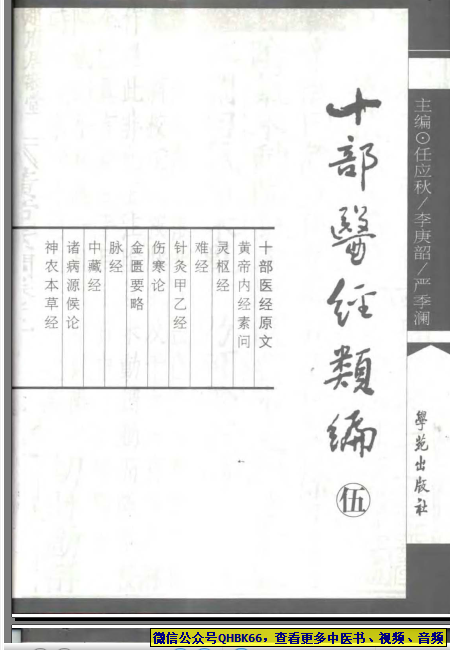 主编⊙任应秋/李庚韶/严季澜
學苑出版社
十部醫經類編
伍
十部医经原文
黄帝内经素问
灵枢经
难经
针灸甲乙经
伤寒论
金匮要略
脉经
中藏经
诸病源候论
神农本草经
微信公众号QHBK66，查看更多中医书、视频、音频